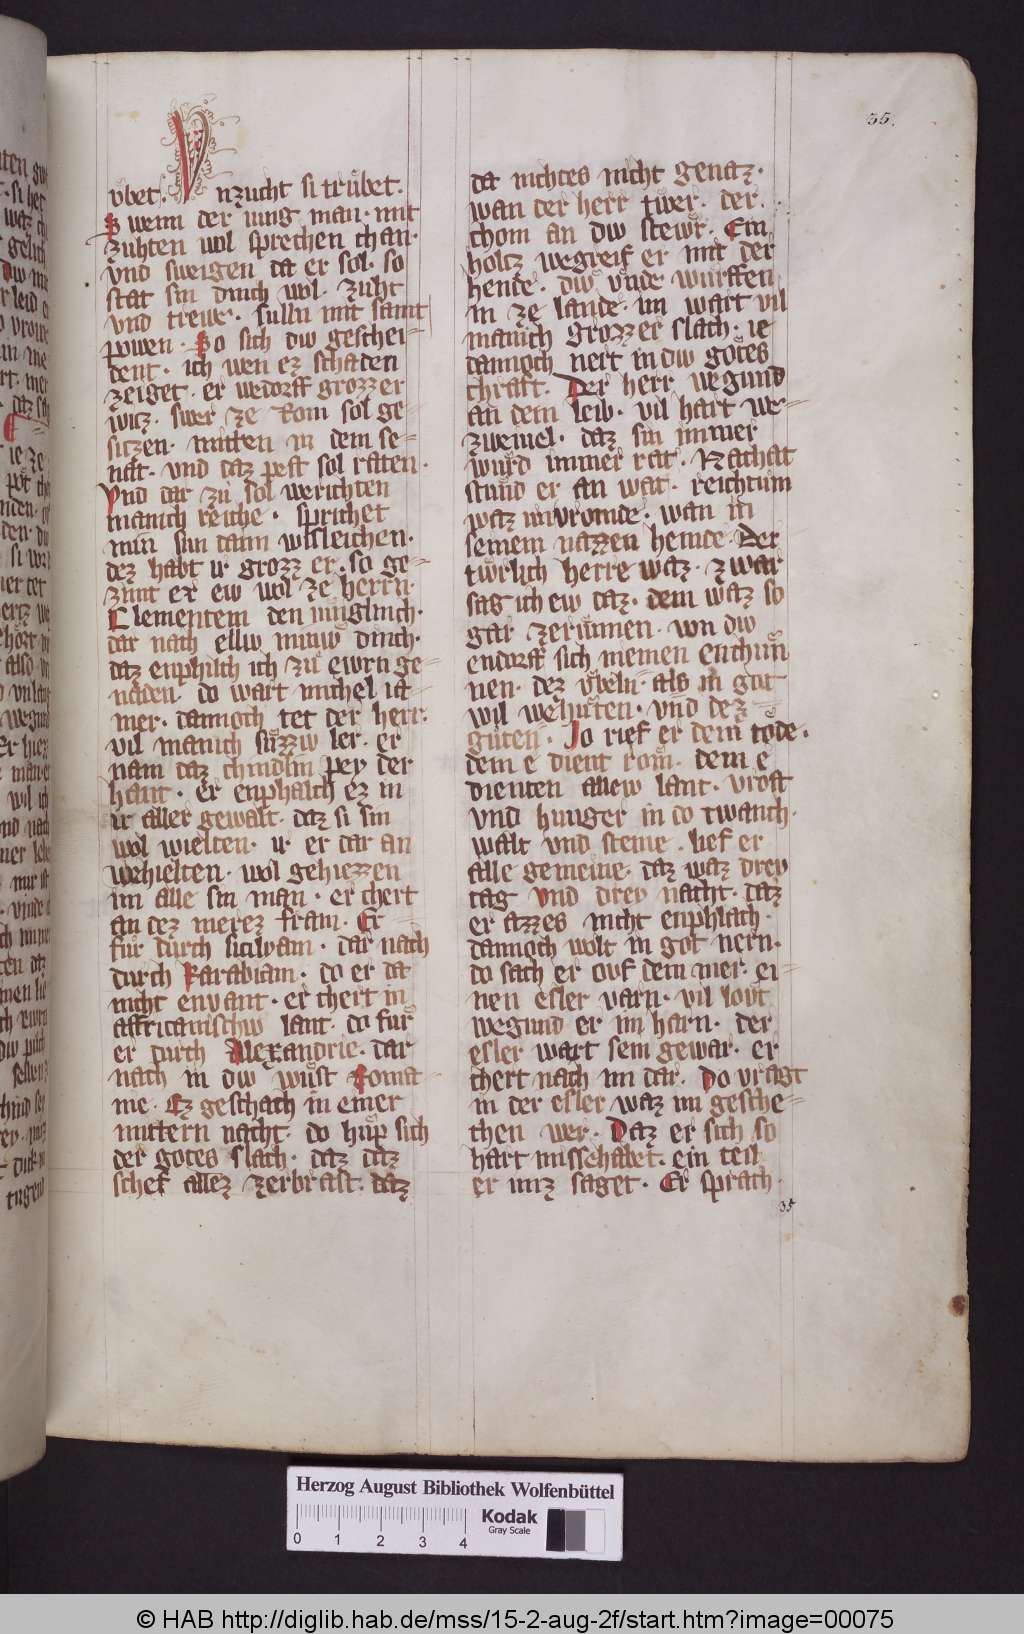 35.
vͤbet. Vnzucht si truͤbet.
Swenn der iung man. mit
zuhten wol sprechen chan.
vnd sweigen da er sol. so
stat sin dinch wol. zuht
vnd trewe. sulln mit samt
powen. So sich diw geschei-
dent. ich wen ez schaden
zeiget. er wedorff grozzer
witz. swer ze Rom sol ge-
sitzen. mitten in dem se-
nat. vnd daz pest sol raten.
Vnd dar zuͦ sol werichten
manich reiche. sprichet
min sun dann wisleichen.
dez habt ir grozz er. so ge-
zimt er ew wol ze herrn.
Clementem den iuͤnglinch.
dar nach elliw minniw dinch.
daz enphilch ich zuͦ ewrn ge-
naden. do wart michel ia-
mer. dannoch tet der herr.
vil manich suͤzziw ler. er
nam daz chindlin pey der
hant. er enphalch ez in
ir aller gewalt. daz si sin
wol wielten. ir er dar an
wehielten. wol gehiezzen
im alle sin man. er chert
an dez merez fram. Er
fuͦr durch siciliam. dar nach
durch Farabiam. do er da
nicht envant. er chert in
affricanischiw lant. do fuͦr
er durch Alexandrie. dar
nach in diw wuͤst Roma-
nie. Ez geschach in einer
mittern nacht. do huͦp sich
der gotes slach. daz daz
schef allez zerbrast. daz
da nichtes nicht genaz.
wan der herr tiwer. der
chom an diw stewr. Ein
holtz wegreif er mit der
hende. diw vnde wurffen
in ze lande. im wart vil
manich grozzer slach. ie
dannoch nert in diw gotes
chraft. Der herr wegund
an dem leib. vil hart we-
zweiuel. daz sin immer
wuͤrd immer rat. Nachat
stuͦnd er an wat. reichtum
waz im vromde. wan in
seinem nazzen hemde. Der
tiwrlich herre waz. zwar
sag ich ew daz. dem waz so
gar zeruͤnnen. von diw
endorff sich niemen enchuͤn
nen. dez vͤbeln als in got
wil wehuͤten. vnd dez
guͤten. Jo rief er dem tode.
dem e dient rom. dem e
dienten allew lant. vrost
vnd hunger in do twanch.
walt vnd steine. lief er
alle gemeine. daz waz drey
tag vnd drey nacht. daz
er azzes nicht enphlach.
dannoch wolt in got nern.
do sach er ouf dem mer. ei-
nen esler varn. vil lovt
wegund er im harn. der
esler wart sein gewar. er
chert nach im dar. Do vragt
in der esler waz im gesche-
chen wer. Daz er sich so
hart missehabet. ein teil
er imz saget. Er sprach.
35
Herzog August Bibliothek Wolfenbüttel
0 1 2 3 4
Kodak
Gray Scale
© HAB http://diglib.hab.de/mss/15-2-aug-2f/start.htm?image=00075